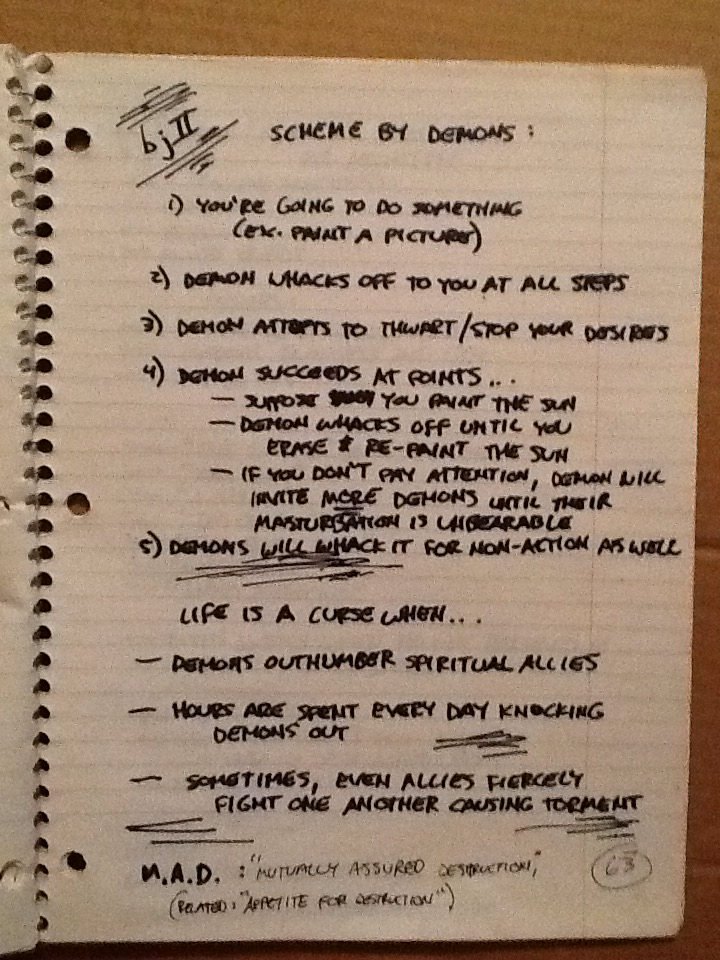 bj II
SCHEME BY DEMONS:
1) YOU'RE GOING TO DO SOMETHING
(EX. PAINT A PICTURE)
2) DEMON WHACKS OFF TO YOU AT ALL STEPS
3) DEMON ATTEPTS TO THWART/STOP YOUR DESIRES
4) DEMON SUCCEEDS AT POINTS...
— SUPPOSE YOU PAINT THE SUN
— DEMON WHACKS OFF UNTIL YOU
ERASE & RE-PAINT THE SUN
— IF YOU DON'T PAY ATTENTION, DEMON WILL
INVITE MORE DEMONS UNTIL THEIR
MASTURBATION IS UNBEARABLE
5) DEMONS WILL WHACK IT FOR NON-ACTION AS WELL
LIFE IS A CURSE WHEN...
— DEMONS OUTNUMBER SPIRITUAL ALLIES
— HOURS ARE SPENT EVERY DAY KNOCKING
DEMONS OUT
— SOMETIMES, EVEN ALLIES FIERCELY
FIGHT ONE ANOTHER CAUSING TORMENT
M.A.D. : "MUTUALLY ASSURED DESTRUCTION,"
(RELATED: "APPETITE FOR DESTRUCTION")
63